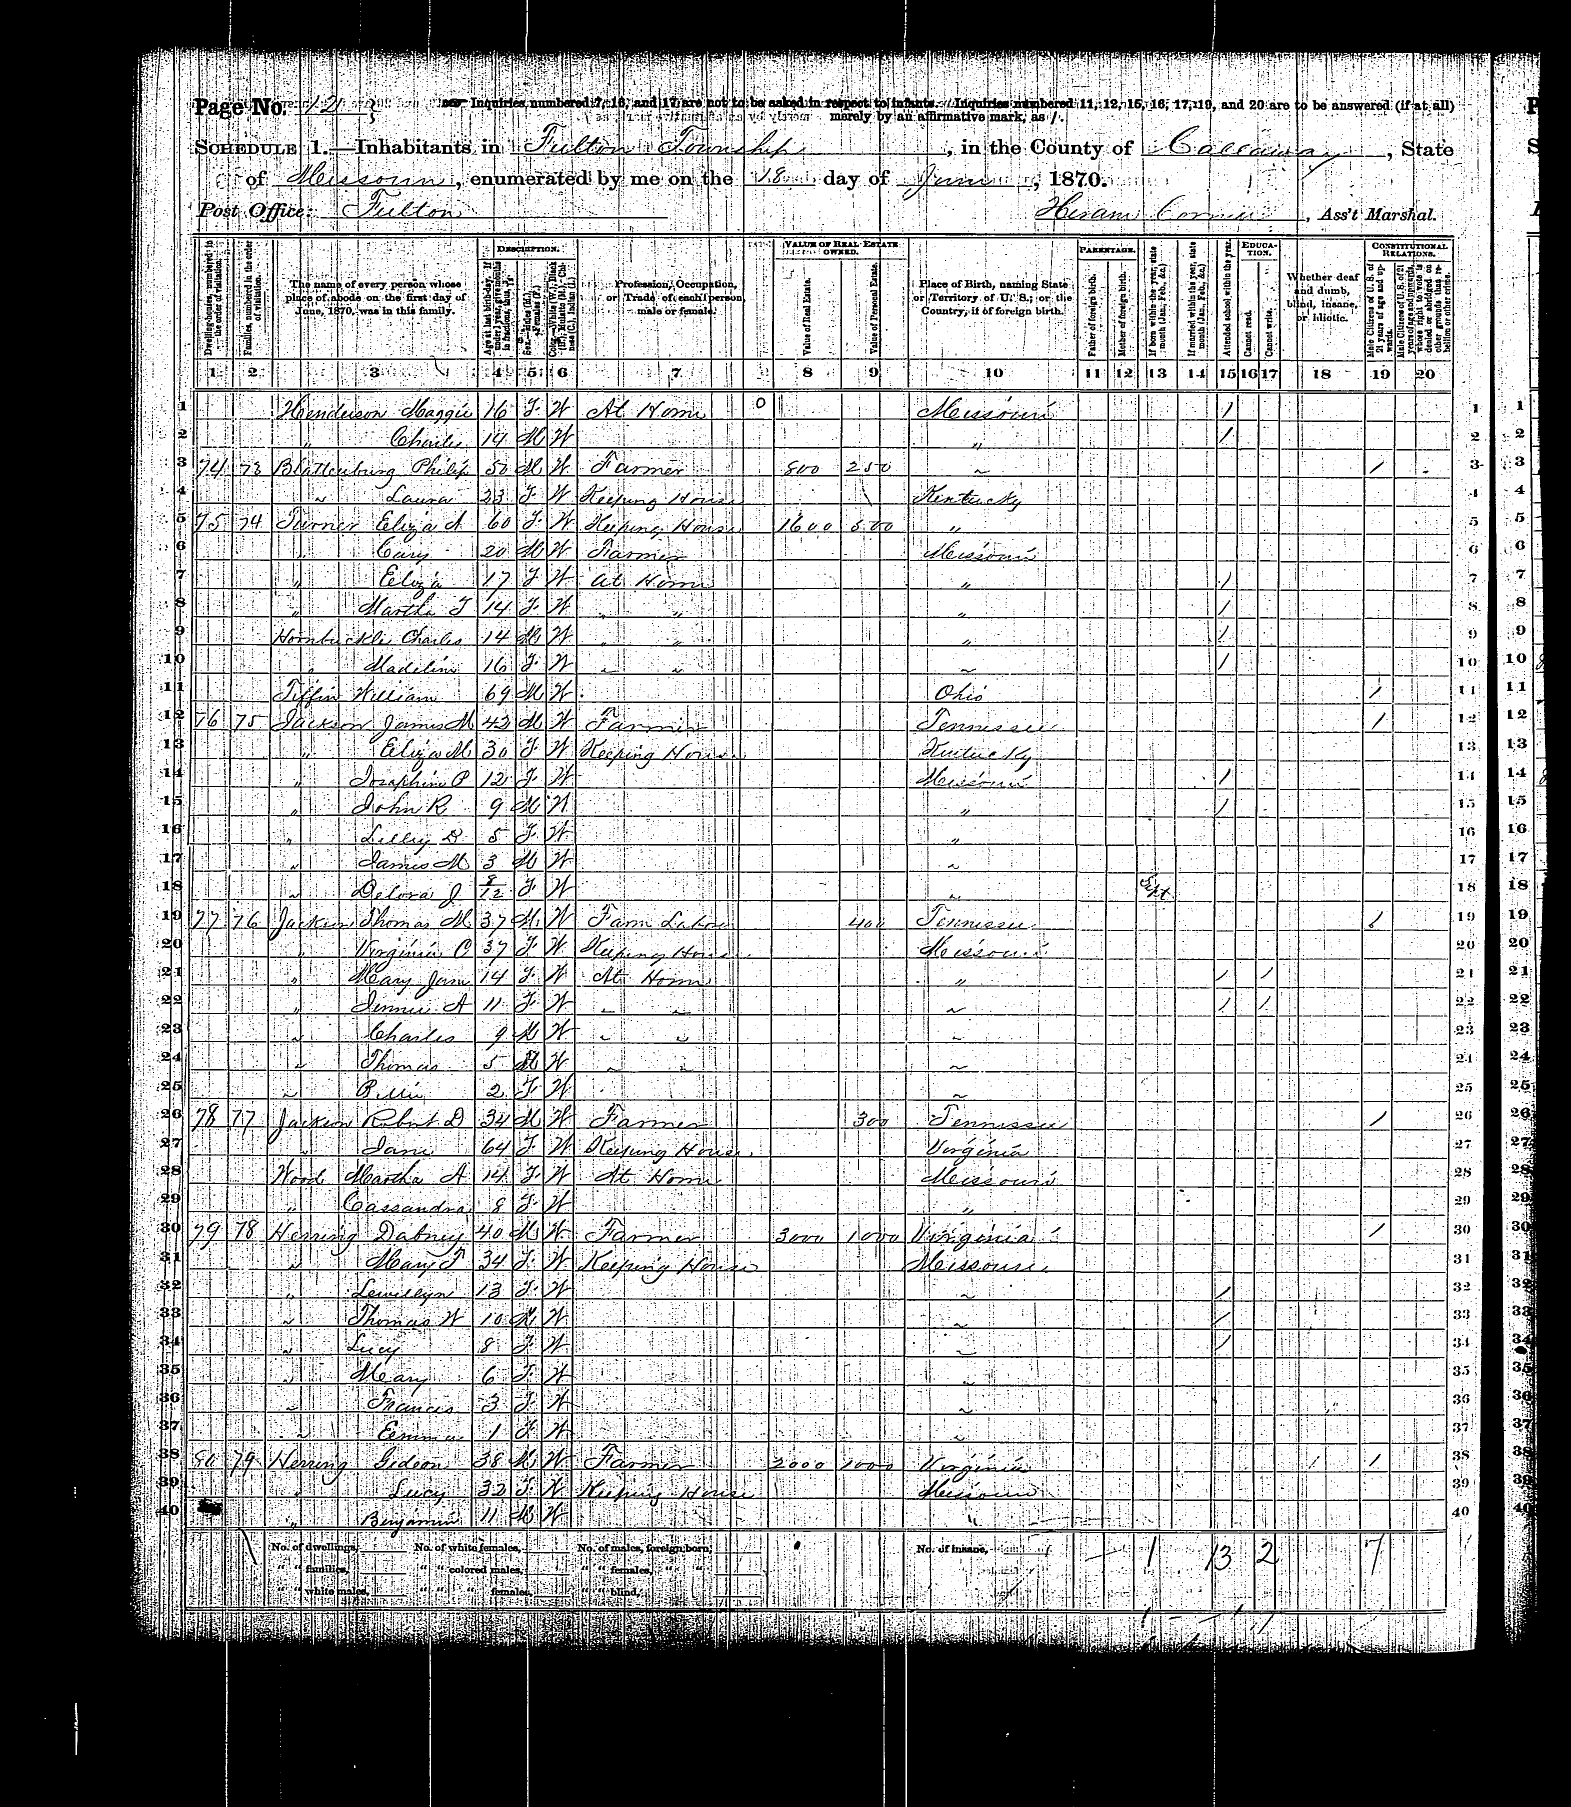 Page No. 12
Inquiries numbered 7, 16, and 17 are not to be asked in respect to infants. Inquiries numbered 11, 12, 15, 16, 17, 19, and 20 are to be answered (if at all)
merely by an affirmative mark, as /.
SCHEDULE 1.—Inhabitants in Fulton Township, in the County of Callaway, State
of Missouri, enumerated by me on the 18 day of June, 1870.
Post Office: Fulton
Hiram, Ass't Marshal.
DESCRIPTION. VALUE OF REAL ESTATE OWNED. PARENTAGE. EDUCATION. CONSTITUTIONAL RELATIONS.
Dwelling-houses, numbered in the order of visitation.
Families, numbered in the order of visitation.
The name of every person whose place of abode on the first day of June, 1870, was in this family.
Profession, Occupation, or Trade of each person, male or female.
Value of Real Estate.
Value of Personal Estate.
Place of Birth, naming State or Territory of U. S.; or the Country, if of foreign birth.
Father of foreign birth.
Mother of foreign birth.
If born within the year, state month (Jan., Feb., &c.)
If married within the year, state month (Jan., Feb., &c.)
Attended school within the year.
Cannot read.
Cannot write.
Whether deaf and dumb, blind, insane, or idiotic.
Male Citizens of U. S. of 21 years of age and upwards.
1 2 3 4 5 6 7 8 9 10 11 12 13 14 15 16 17 18 19 20
1 Henderson Maggie 16 F W At Home Missouri / 1
2 " Charles 14 M W " / 2
3 74 73 Blattenburg Philip 50 M W Farmer 800 250 " / 3
4 " Laura 23 F W Keeping House Kentucky 4
5 75 74 Turner Eliza A 60 F W Keeping House 1600 500 " 5
6 " Cary 20 M W Farmer Missouri 6
7 " Eliza 17 F W At Home " / 7
8 " Martha F 14 F W " " " / 8
9 Hornbuckle Charles 14 M W " " " / 9
10 " Madeline 16 F W " " " / 10
11 Tiffin William 69 M W Ohio / 11
12 76 75 Jackson James M 42 M W Farmer Tennessee / 12
13 " Eliza M 30 F W Keeping House Kentucky 13
14 " Josephine P 12 F W Missouri / 14
15 " John R 9 M W " / 15
16 " Lilly D 5 F W " 16
17 " James M 3 M W " 17
18 " Delora J 8/12 F W " Sept 18
19 77 76 Jackson Thomas M 37 M W Farm Labor 400 Tennessee / 19
20 " Virginia C 37 F W Keeping House Missouri 20
21 " Mary Jane 14 F W At Home " / / 21
22 " Jennie A 11 F W " " " / / 22
23 " Charles 9 M W " " " 23
24 " Thomas 5 M W " " " 24
25 " 2 F W " 25
26 78 77 Jackson Robert D 34 M W Farmer 300 Tennessee / 26
27 " Jane 64 F W Keeping House Virginia 27
28 Wood Martha A 14 F W At Home Missouri 28
29 " Cassandra 8 F W " 29
30 79 78 Herring Dabney 40 M W Farmer 3000 1000 Virginia / 30
31 " Mary F 34 F W Keeping House Missouri 31
32 " Lewellyn 13 F W " / 32
33 " Thomas W 10 M W " / 33
34 " Lucy 8 F W " / 34
35 " Mary 6 F W " 35
36 " Francis 3 F W " 36
37 " Emma 1 F W " 37
38 80 79 Herring Gideon 38 M W Farmer 2000 1000 Virginia / 38
39 " Lucy 32 F W Keeping House Missouri 39
40 " Benjamin 11 M W " 40
No. of dwellings, No. of white females, No. of males, foreign born, No. of insane, 1 13 2 7
" " families, " " colored males, " " females, " "
" " white males, " " " females, " " blind,